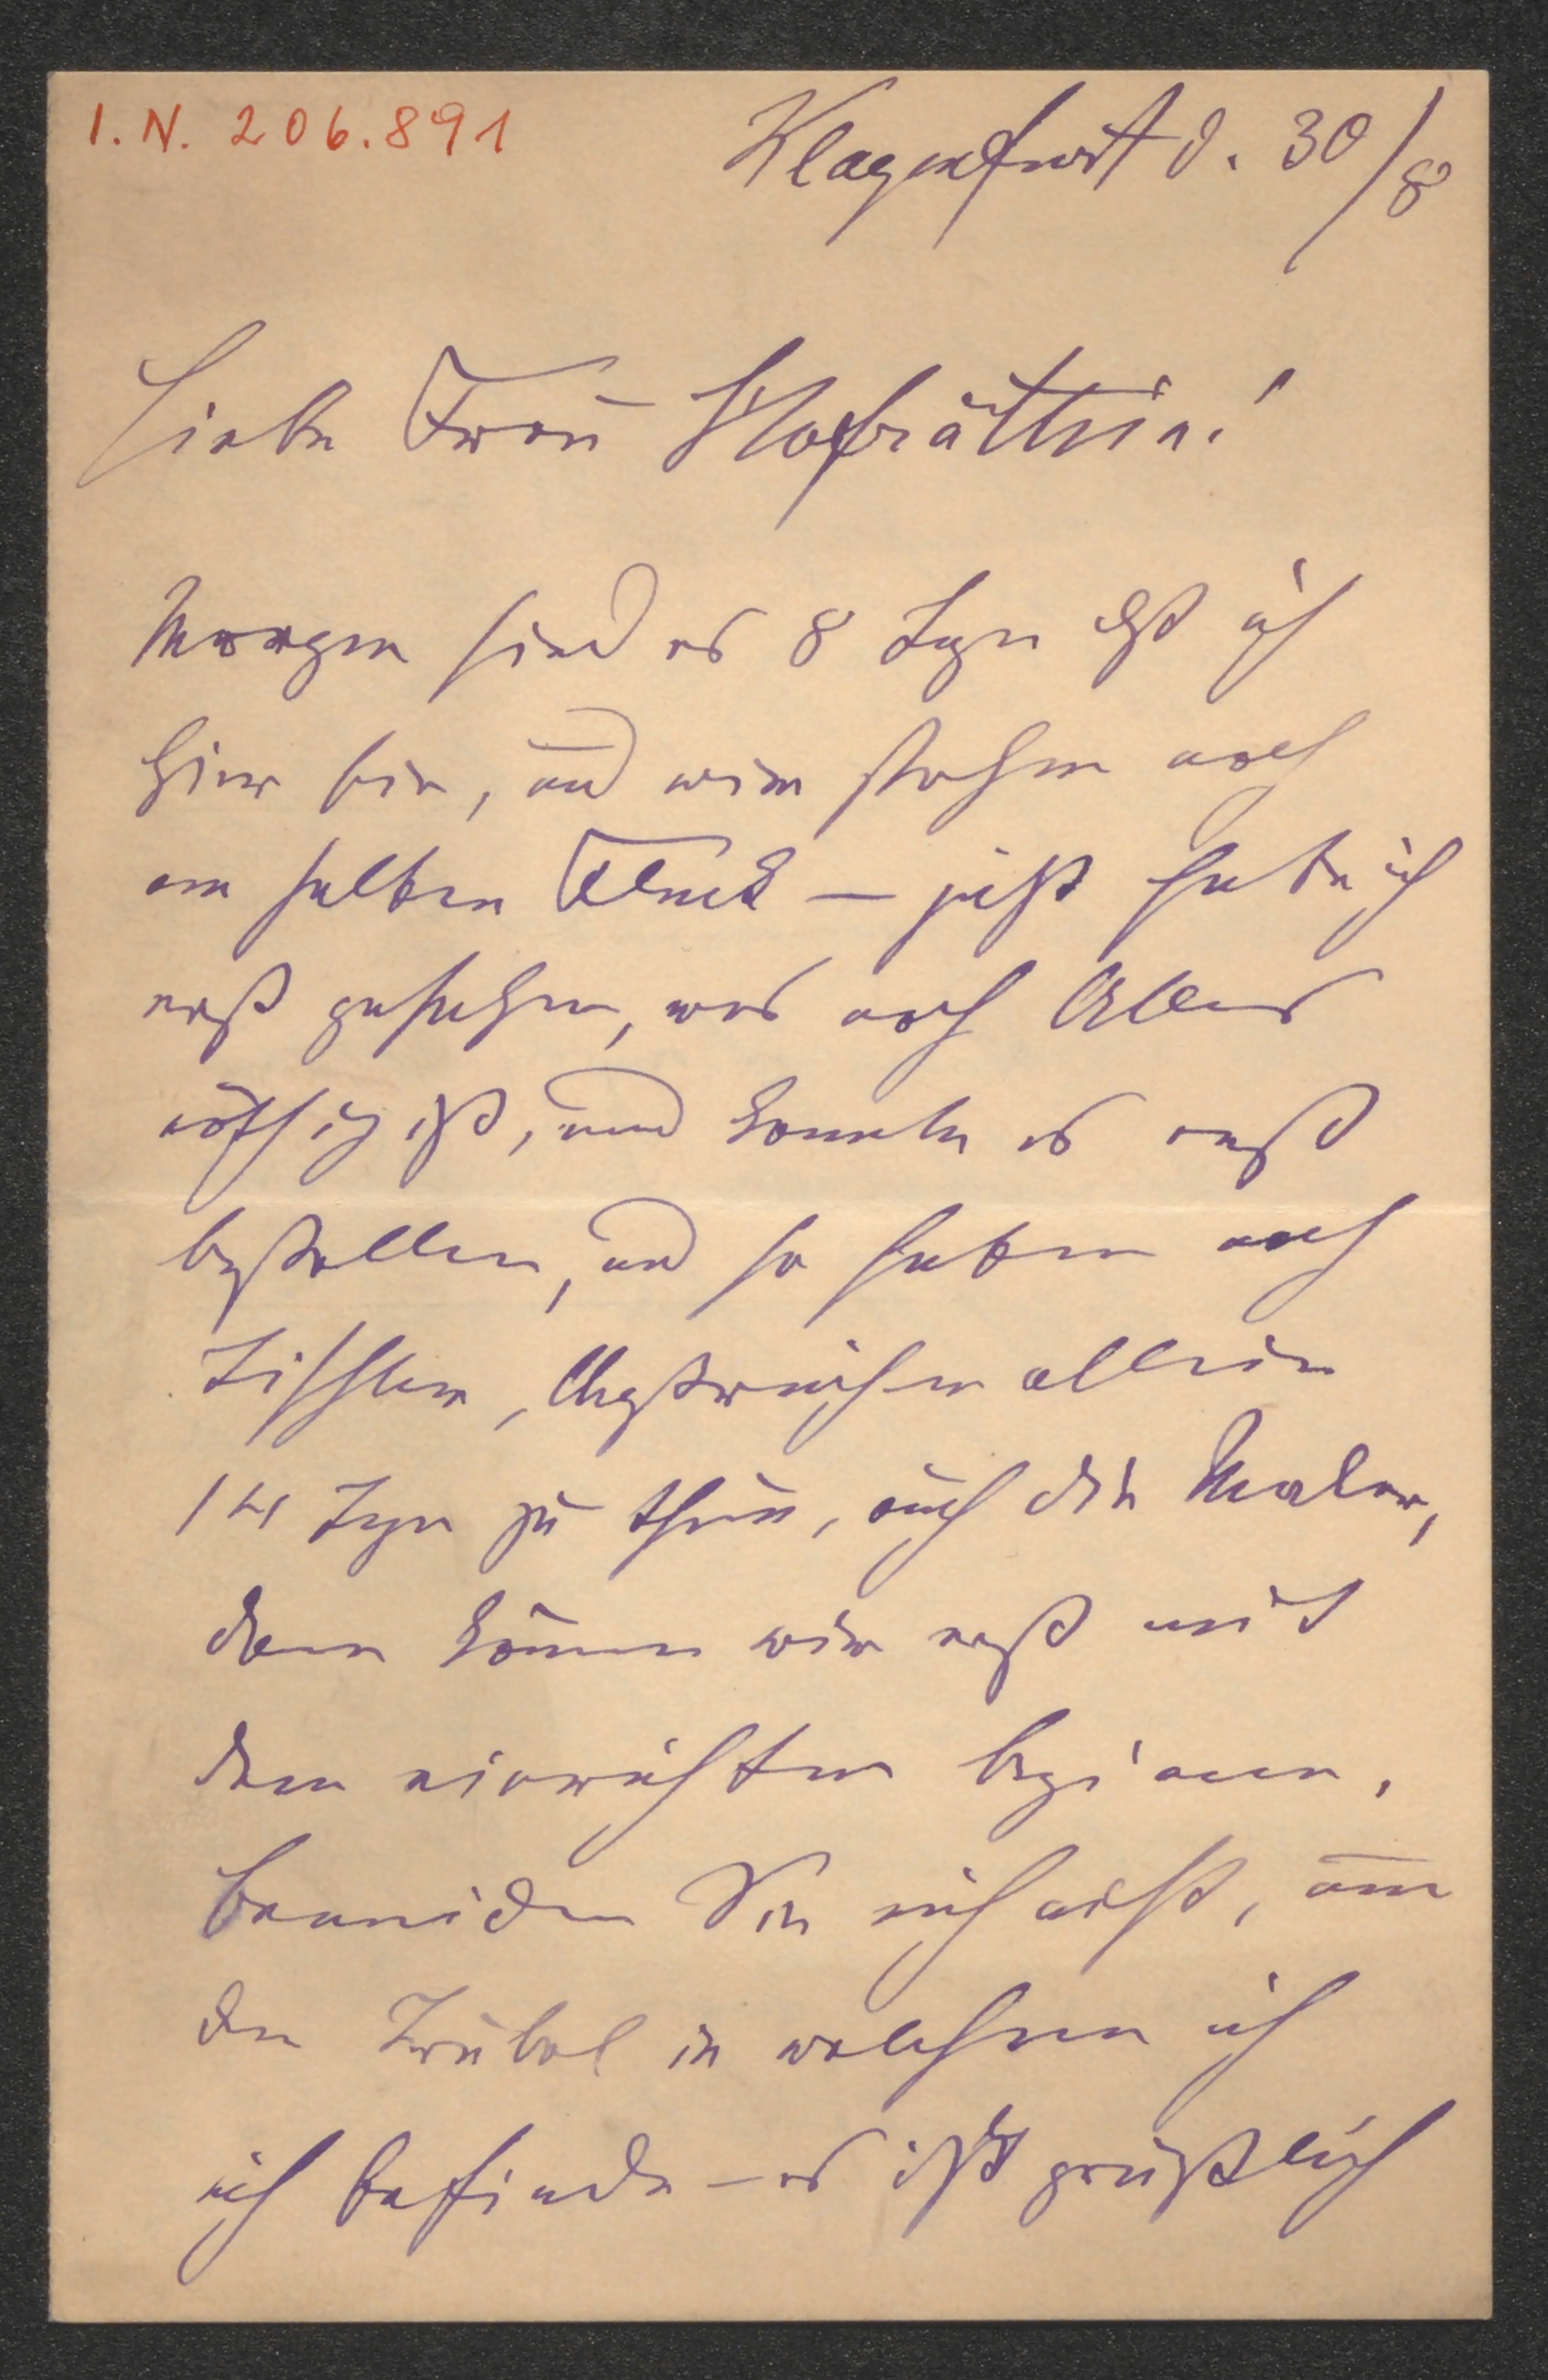 I. N. 206.891
Klagenfurt d. 30/8
Liebe Frau Hofräthin!
Morgen sind es 8 Tage daß ich
hier bin, und wir stehen noch
am selben Fleck – jetzt habe ich
erst gesehen, was noch Alles
nöthig ist, und konnte es erst
bestellen, und so haben noch
Tischler, Anstreicher allein
14 Tage zu thun, auch die Maler,
dann können wir erst mit
dem einrichten beginnen.
Beneiden Sie mich nicht, um
den Trubel in welchem ich
mich befinde – es ist gräßlich